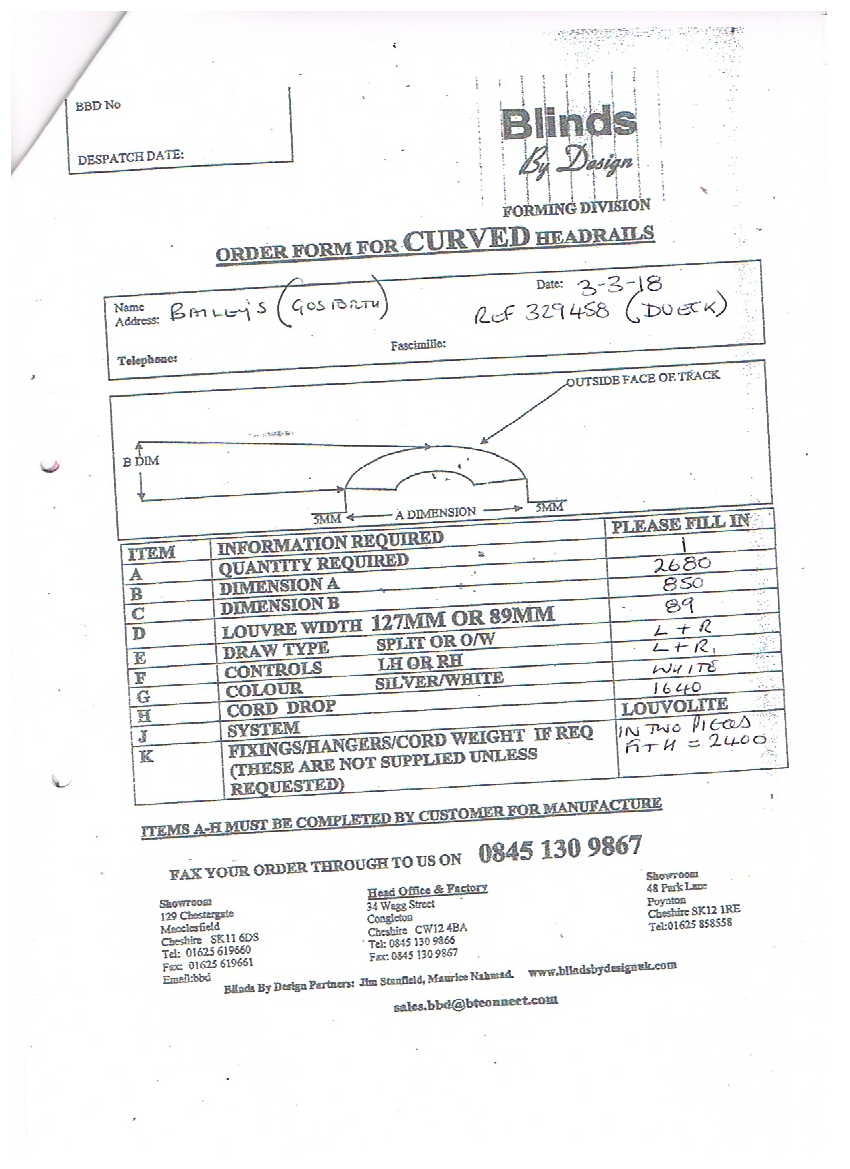 BBD No
DESPATCH DATE:
Blinds
By Design
FORMING DIVISION
ORDER FORM FOR CURVED HEADRAILS
Name
Address: BAILEY'S (GOSFORTH)
Date: 3-3-18
REF 329458 (DUECK)
Telephone:
Fascimilie:
OUTSIDE FACE OF TRACK
B DIM
5MM A DIMENSION 5MM
ITEM INFORMATION REQUIRED PLEASE FILL IN
A QUANTITY REQUIRED 1
B DIMENSION A 2680
C DIMENSION B 850
D LOUVRE WIDTH 127MM OR 89MM 89
E DRAW TYPE SPLIT OR O/W L + R
F CONTROLS LH OR RH L + R.
G COLOUR SILVER/WHITE WHITE
H CORD DROP 1640
J SYSTEM LOUVOLITE
K FIXINGS/HANGERS/CORD WEIGHT IF REQ
(THESE ARE NOT SUPPLIED UNLESS
REQUESTED)
IN TWO PIECES
= 2400
ITEMS A-H MUST BE COMPLETED BY CUSTOMER FOR MANUFACTURE
FAX YOUR ORDER THROUGH TO US ON 0845 130 9867
Showroom
129 Chestergate
Macclesfield
Cheshire SK11 6DS
Tel: 01625 619660
Fax: 01625 619661
Email:bbd
Head Office & Factory
34 Wagg Street
Congleton
Cheshire CW12 4BA
Tel: 0845 130 9866
Fax: 0845 130 9867
Showroom
48 Park Lane
Poynton
Cheshire SK12 1RE
Tel:01625 858558
Blinds By Design Partners: Jim Stanfield, Maurice Nahmad. www.blindsbydesignuk.com
sales.bbd@btconnect.com